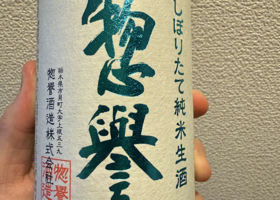 しぼりたて純米生酒
惣譽
栃木県芳賀町大字上根五三九
惣誉酒造株式会社
惣誉
酒造